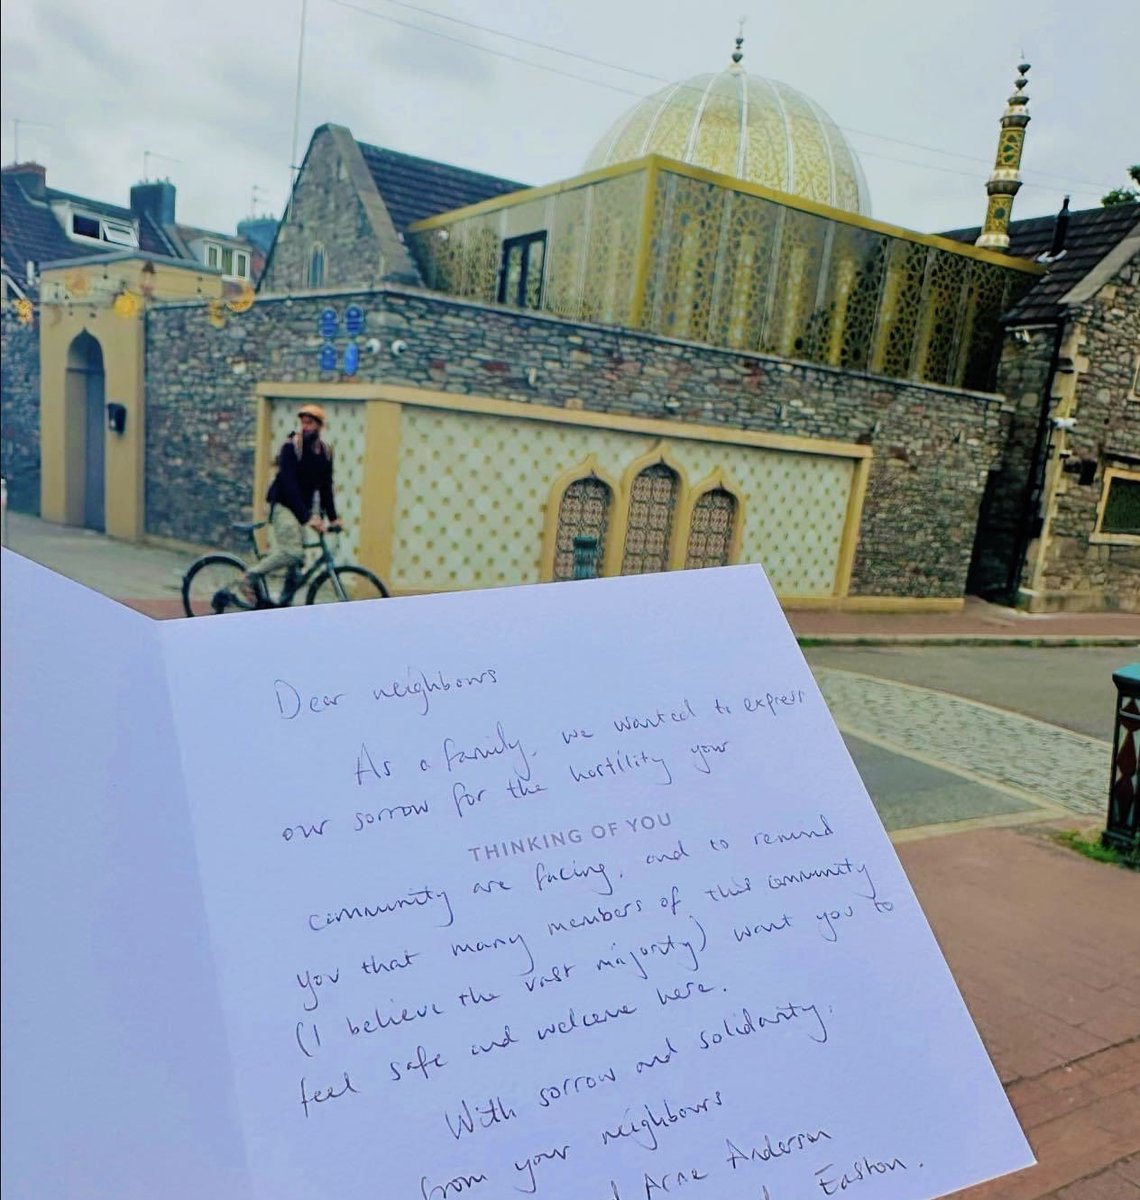 Dear neighbours
As a family, we wanted to express
our sorrow for the hostility your
THINKING OF YOU
community are facing, and to remind
you that many members of this community
(I believe the vast majority) want you to
feel safe and welcome here.
With sorrow and solidarity,
from your neighbours
Arne Anderson
Easton.